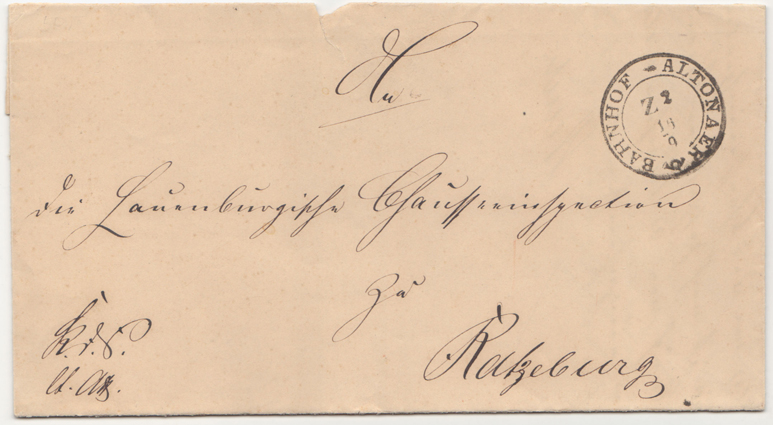 An
die Lauenburgische Chausseeinspection
zu
Ratzeburg
K. d. S.
BAHNHOF ALTONAER
Z 2